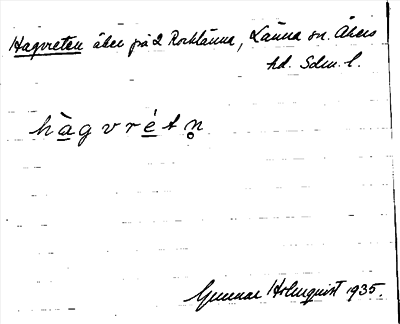 Hagvreten åker på 2 Rocklänna, Länna sn. Åkers
hd. Sdm. l.
hàgvrétn̥
Gunnar Holmquist 1935